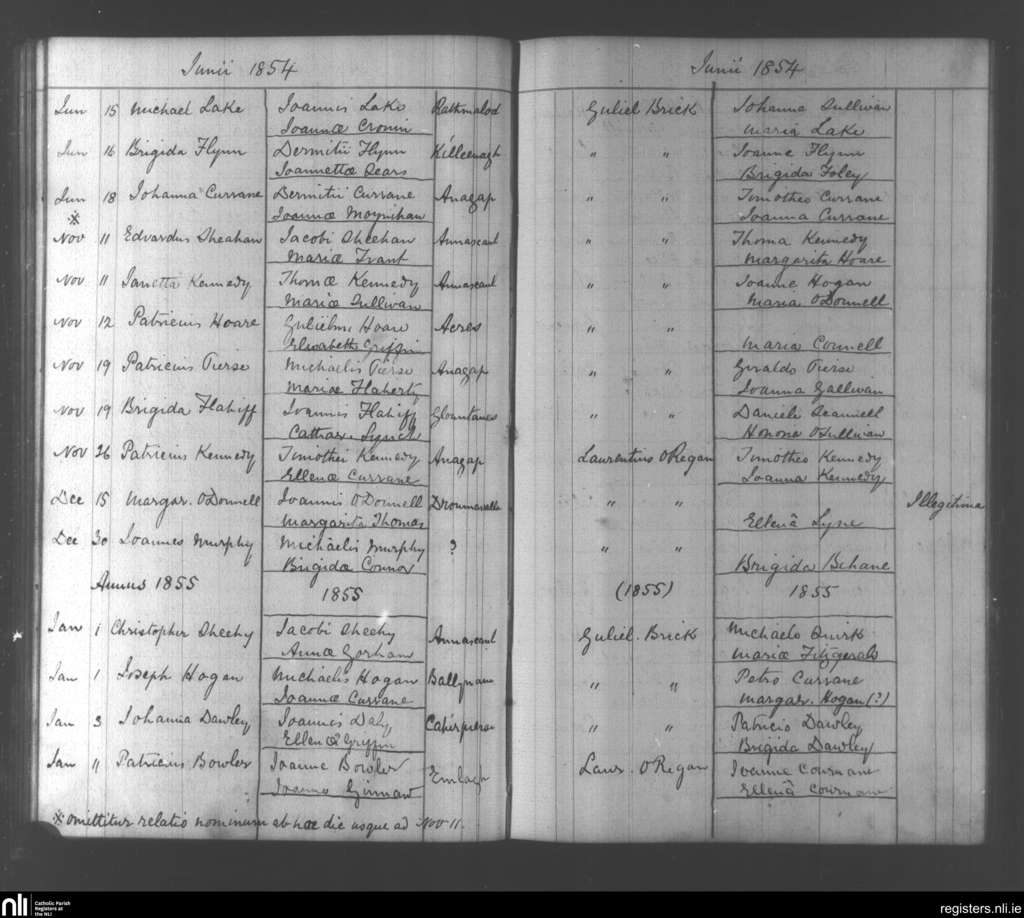 Junii 1854
Jun 15 Michael Lake Joannis Lake Rathmalod
Joannæ Cronin
Jun 16 Brigida Flynn Dermitii Flynn Killeenagh
Joannettæ Sears
Jun 18 Johanna Currane Dermitii Currane Anagap
※ Joannæ Moynihan
Nov 11 Edvardus Sheahan Jacobi Sheehan Annascaul
Mariæ Trant
Nov 11 Janetta Kennedy Thomæ Kennedy Annascaul
Mariæ Sullivan
Nov 12 Patricius Hoare Gulielmi Hoare Acres
Elisabeth Griffin
Nov 19 Patricius Pierse Michaelis Pierse Anagap
Mariæ Flaherty
Nov 19 Brigida Flahiff Joannis Flahiff Glountanes
Cathar. Lynch
Nov 26 Patricius Kennedy Timothei Kennedy Anagap
Ellenæ Currane
Dec 15 Margar. O'Donnell Joannis O'Donnell
Margarita Thomas
Dec 30 Joannes Murphy Michaelis Murphy ?
Brigidæ Connor
Annus 1855 1855
Jan 1 Christopher Sheehy Jacobi Sheehy Annascaul
Annæ Gorham
Jan 1 Joseph Hogan Michaelis Hogan
Joannæ Currane
Jan 3 Johanna Dawley Joannis Daly
Ellenæ Griffin
Jan 11 Patricius Bowler Joanne Bowler Emlagh
Joanna
※ omittitur relatio nominum ab hac die usque ad Nov 11.
Junii 1854
Guliel Brick Johanna Sullivan
Maria Lake
" " Joanne Flynn
Brigida Foley
" " Timotheo Currane
Joanna Currane
" " Thoma Kennedy
Margarita Hoare
" " Joanne Hogan
Maria O'Donnell
" "
Maria Connell
" " Giraldo Pierse
Joanna Gallivan
" " Daniele Scannell
Honora O'Sullivan
Laurentius O'Regan Timotheo Kennedy
Joanna Kennedy
" " Illegitima
Ellenâ Lyne
" "
Brigida Behane
(1855) 1855
Guliel. Brick Michaelo Quirk
Mariæ Fitzgerald
" " Petro Currane
Margar. Hogan (?)
" " Patricio Dawley
Brigida Dawley
Laur. O'Regan Joanne Cournane
Ellenâ Cournane
nli
Catholic Parish
Registers at
the NLI
registers.nli.ie